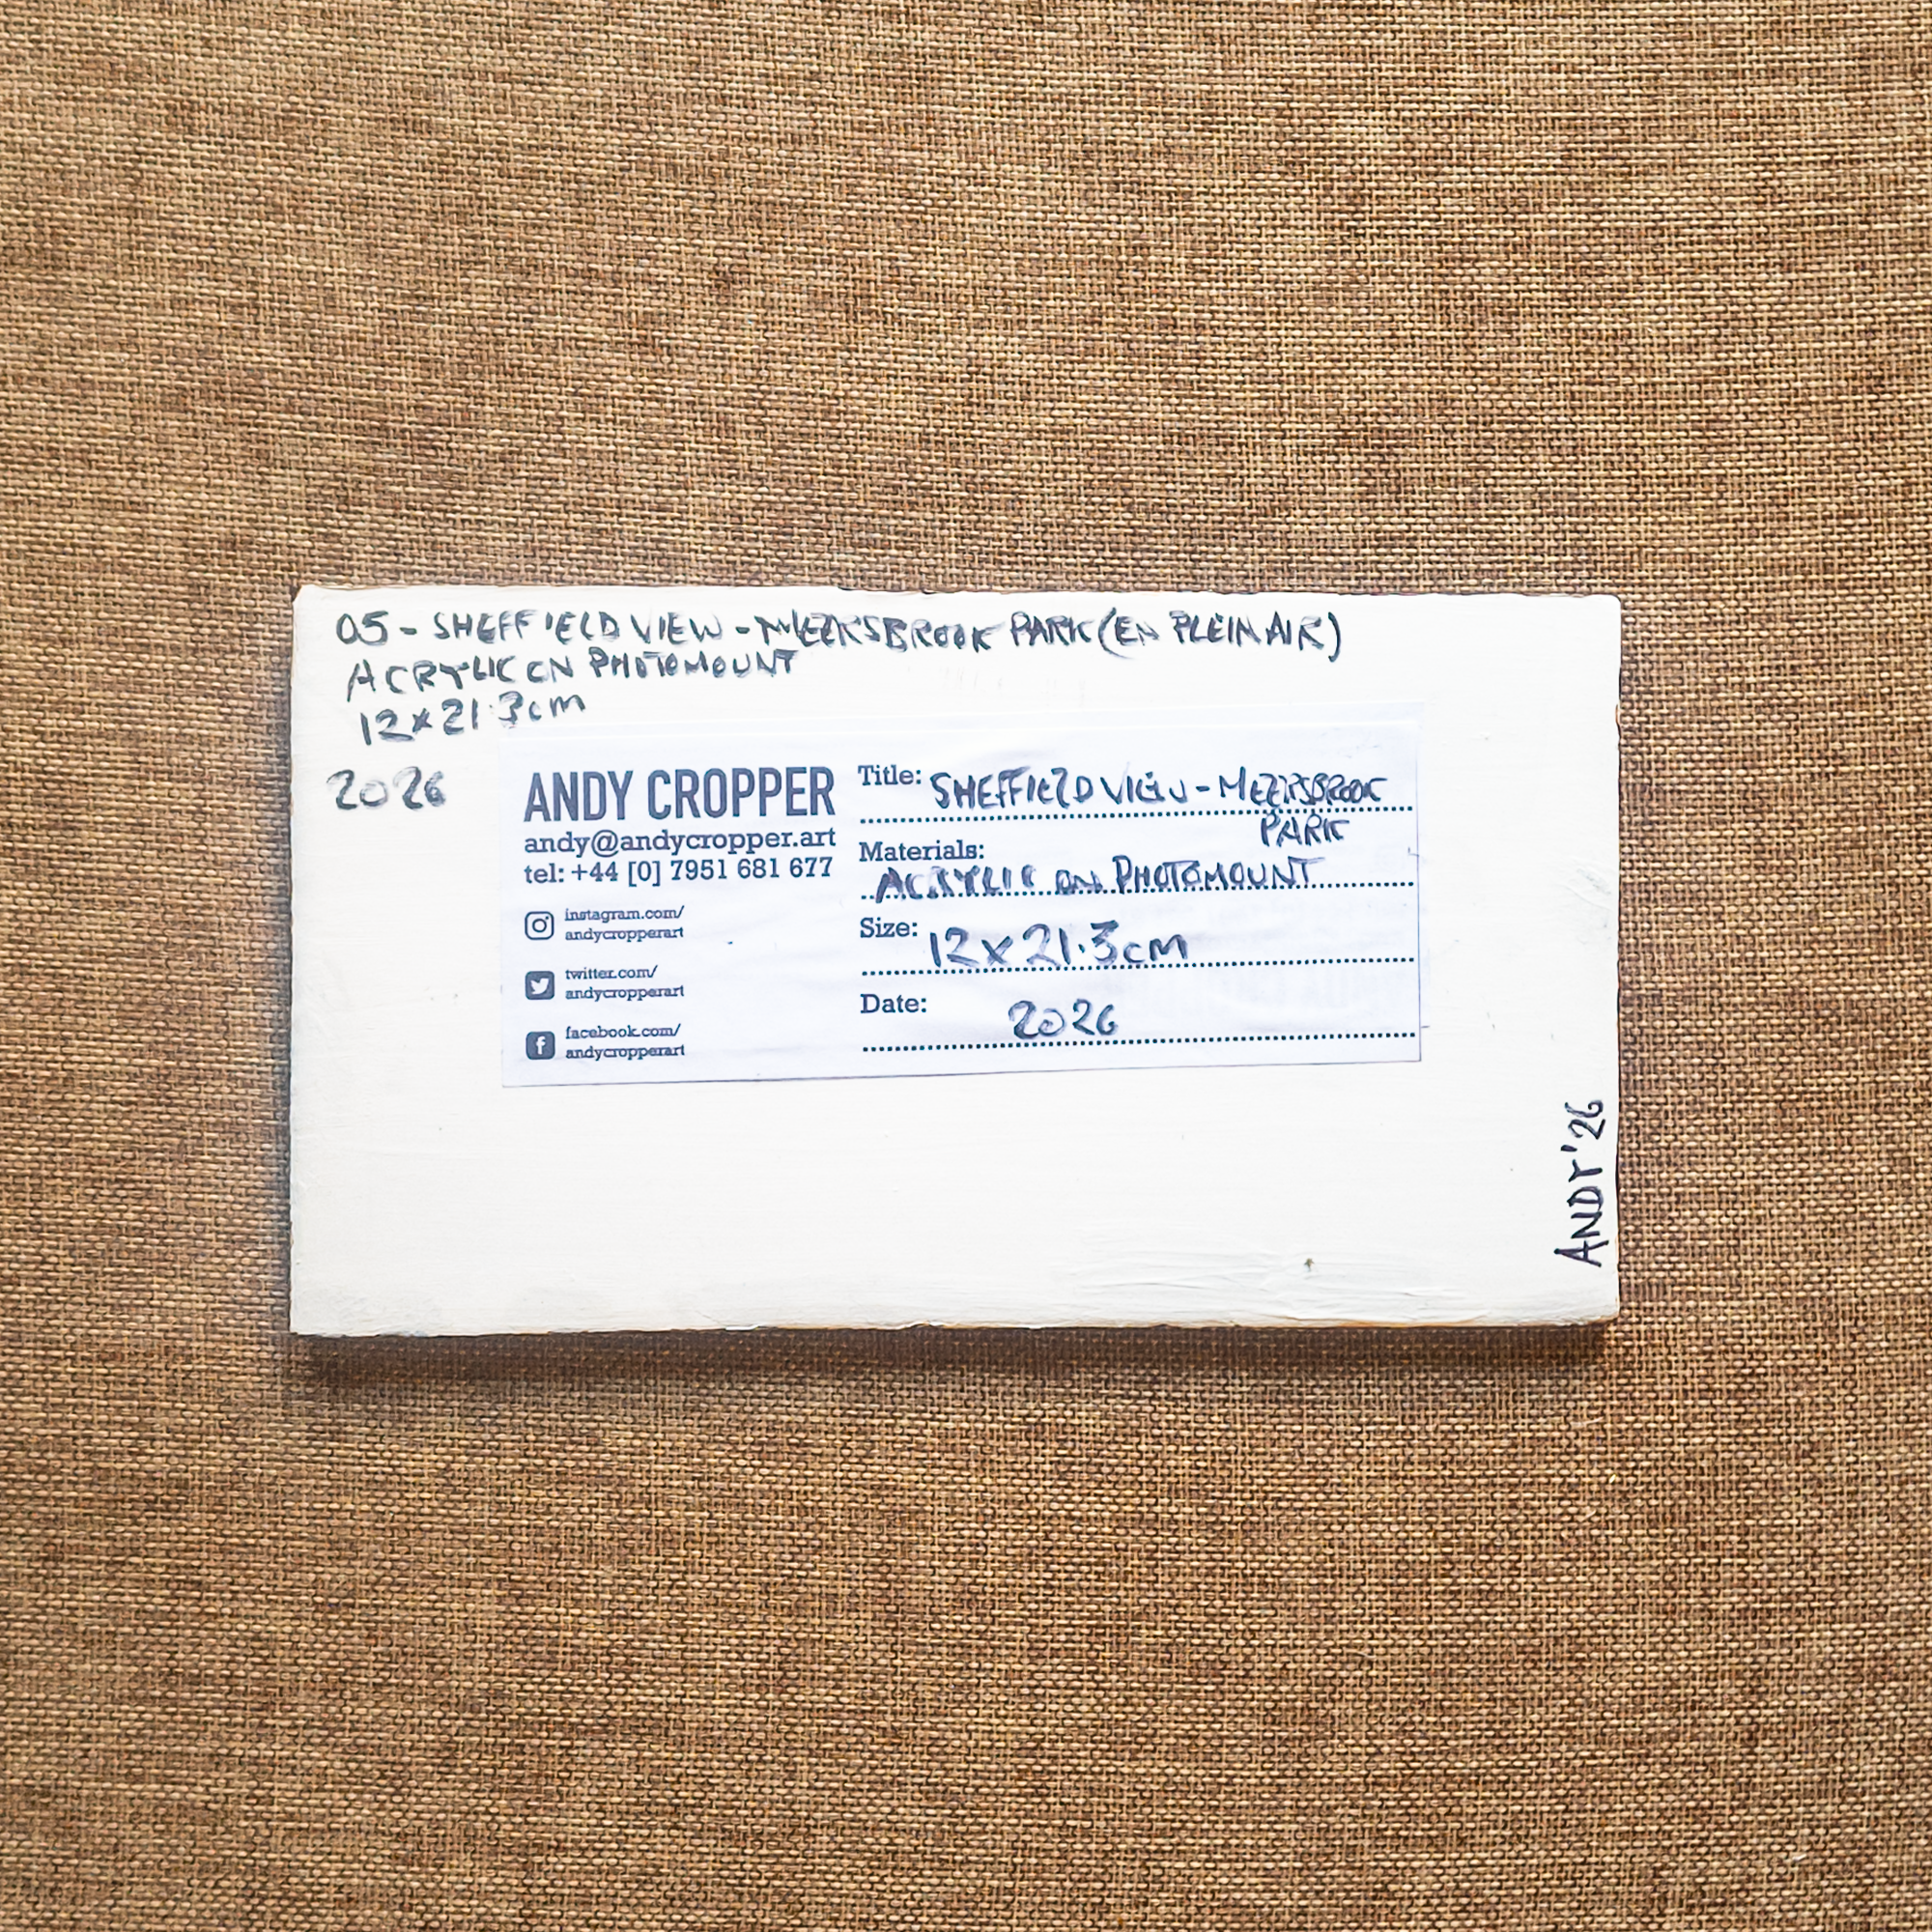 05 - SHEFFIELD VIEW - MEERSBROOK PARK (EN PLEIN AIR)
ACRYLIC ON PHOTOMOUNT
12 x 21.3cm
2026
ANDY CROPPER
andy@andycropper.art
tel: +44 [0] 7951 681 677
instagram.com/
andycropperart
twitter.com/
andycropperart
facebook.com/
andycropperart
Title: SHEFFIELD VIEW - MEERSBROOK
PARK
Materials:
ACRYLIC ON PHOTOMOUNT
Size: 12 x 21.3cm
Date: 2026
ANDY '26